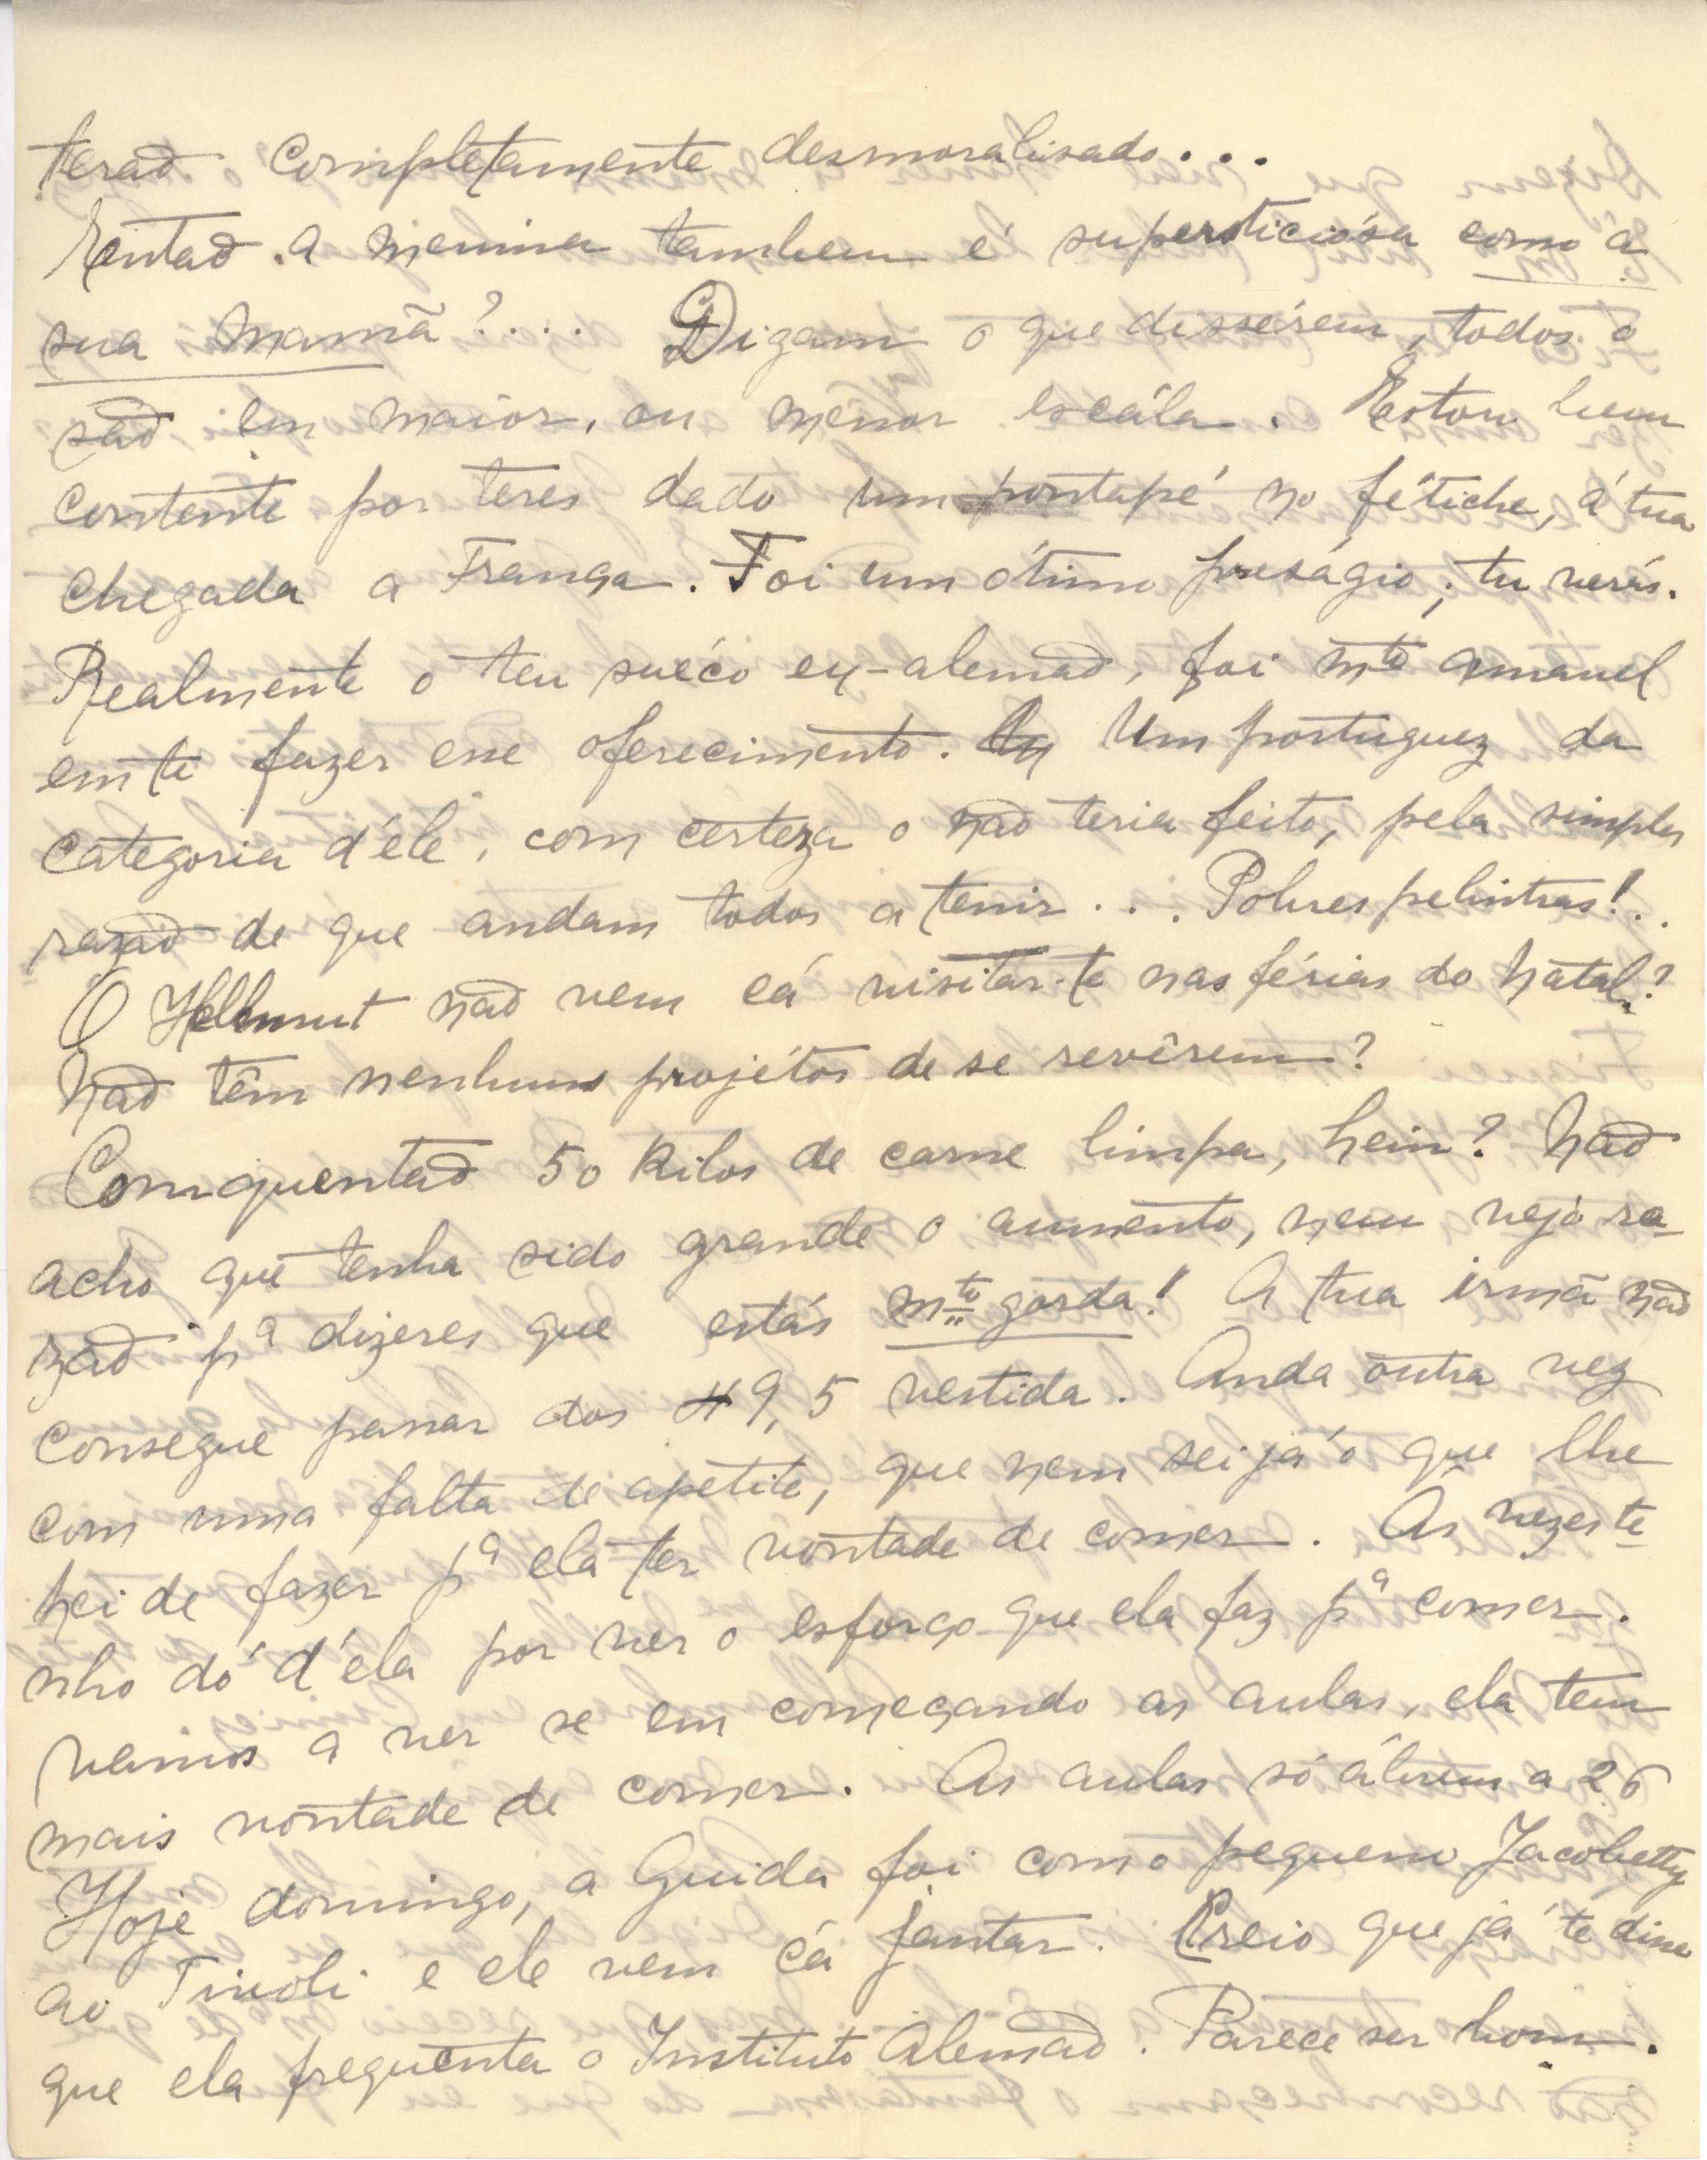 terão completamente desmoralisado...
Então. A menina tambem é supersticiósa como a
sua Mamã?.... Digam o que dissérem, todos o
são em maior, ou menor escála. Estou bem
contente por teres dado um pontapé no fétiche, á tua
chegada a França. Foi um ótimo preságio; tu verás.
Realmente o teu suéco ex-alemão, foi mto amavel
em te fazer esse oferecimento. Um portuguez da
categoria d'éle, com certeza o não teria feito, pela simples
razão de que andam todos a tenir... Pobres pelintras!..
O Hellmut não vem cá visitar-te nas férias do Natal?
Não têm nenhuns projétos de se revêrem?
Comquentão 50 Kilos de carne limpa, hein? Não
acho que tenha sido grande o aumento, nem vejo ra-
zão pª dizeres que estás mto gorda! A tua irmã não
consegue passar dos 49,5 vestida. Anda outra vez
com uma falta de apetite, que nem sei já o que lhe
hei de fazer pª ela ter vontade de comer. As vezes te-
nho dó d'éla por ver o esforço que ela faz pª comer.
Vamos a ver se em começando as aulas, ela tem
mais vontade de comer. As aulas só ábrem a 26
Hoje domingo, a Guida foi com o pequeno Jacobetty
ao Tivoli e ele vem cá jantar. Creio que já te disse
que ela frequenta o Instituto Alemão. Parece ser bom.